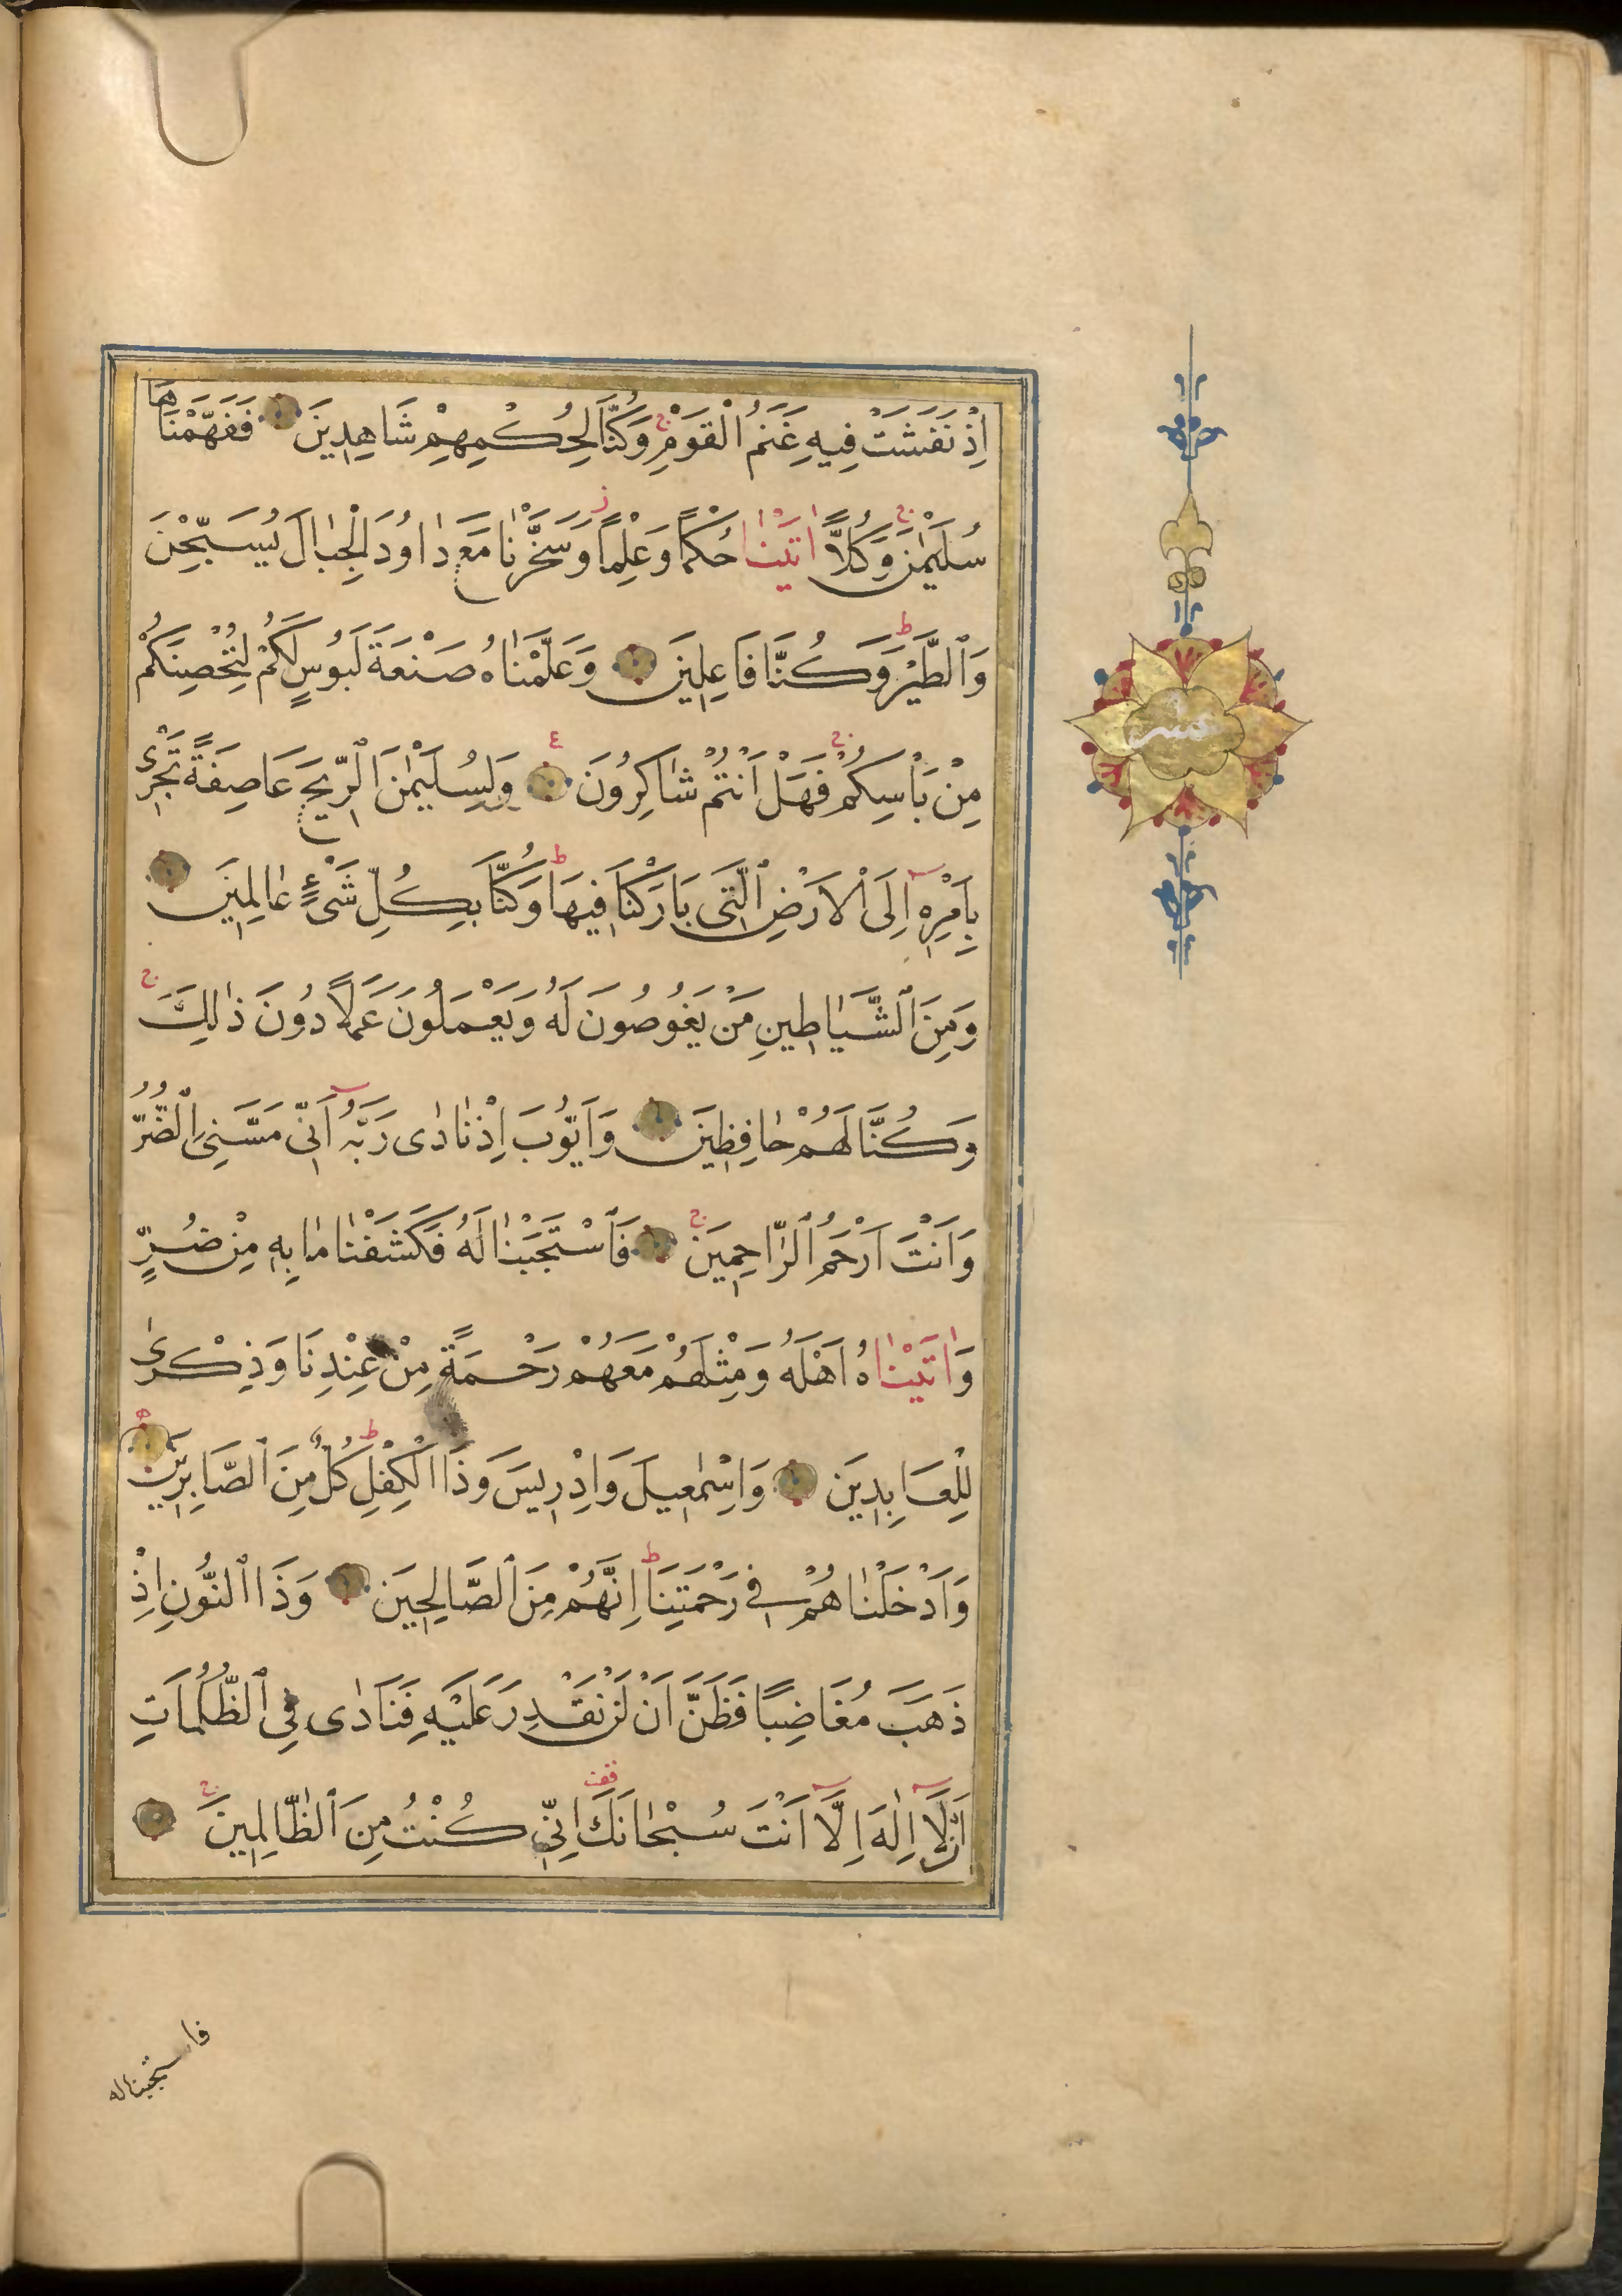 اِذْ نَفَشَتْ فِيهِ غَنَمُ الْقَوْمِ ج وَكُنَّا لِحُكْمِهِمْ شَاهِدِينَ فَفَهَّمْنَاهَا
سُلَيْمٰنَ ج وَكُلًّا اٰتَيْنٰا حُكْمًا وَعِلْمًا ز وَسَخَّرْنٰا مَعَ دٰاوُدَ الْجِبٰالَ يُسَبِّحْنَ
وَٱلطَّيْرَ ط وَكُنَّا فَاعِلِينَ وَعَلَّمْنٰاهُ صَنْعَةَ لَبُوسٍ لَكُمْ لِتُحْصِنَكُمْ
مِنْ بَاْسِكُمْ ج فَهَلْ اَنْتُمْ شٰاكِرُونَ ع وَلِسُلَيْمٰنَ ٱلرِّيحَ عَاصِفَةً تَجْرِى
بِاَمْرِهِ اِلَى ٱلْاَرْضِ ٱلَّتِى بَارَكْنَا فِيهَا ط وَكُنَّا بِكُلِّ شَىْءٍ عٰالِمِينَ
وَمِنَ ٱلشَّيٰاطِينِ مَنْ يَغُوصُونَ لَهُ وَيَعْمَلُونَ عَمَلًا دُونَ ذٰلِكَ ج
وَكُنَّا لَهُمْ حٰافِظِينَ وَاَيُّوبَ اِذْ نٰادٰى رَبَّهُ اَنِّى مَسَّنِىَ ٱلضُّرُّ
وَاَنْتَ اَرْحَمُ ٱلرَّاحِمِينَ ج فَٱسْتَجَبْنٰا لَهُ فَكَشَفْنٰا مٰا بِهِ مِنْ ضُرٍّ
وَاٰتَيْنٰاهُ اَهْلَهُ وَمِثْلَهُمْ مَعَهُمْ رَحْمَةً مِنْ عِنْدِنَا وَذِكْرٰى
لِلْعَابِدِينَ وَاِسْمٰعِيلَ وَاِدْرِيسَ وَذَا الْكِفْلِ ط كُلٌّ مِنَ ٱلصَّابِرِينَ
وَاَدْخَلْنٰاهُمْ فِى رَحْمَتِنَا ط اِنَّهُمْ مِنَ ٱلصَّالِحِينَ وَذَا ٱلنُّونِ اِذْ
ذَهَبَ مُغَاضِبًا فَظَنَّ اَنْ لَنْ نَقْدِرَ عَلَيْهِ فَنَادٰى فِى ٱلظُّلُمَاتِ
اَنْ لَا اِلٰهَ اِلَّا اَنْتَ سُبْحٰانَكَ قف اِنِّى كُنْتُ مِنَ ٱلظَّالِمِينَ ج
عشر
فاستجبنا له